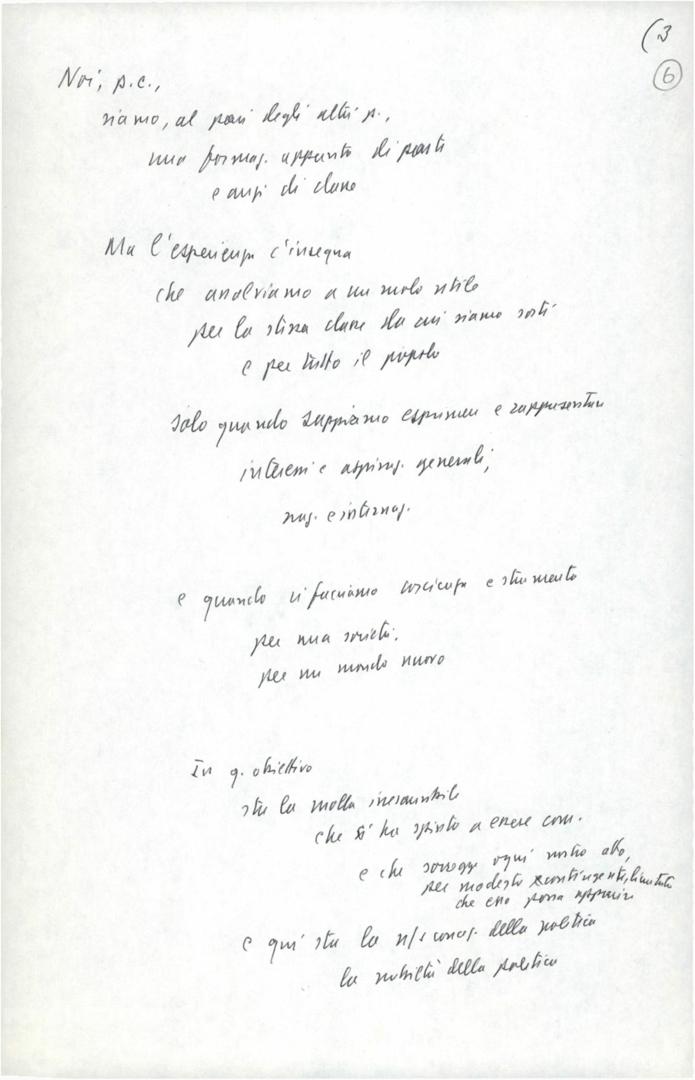 (3
6
Noi, p.c.,
siamo, al pari degli altri p.,
una formaz. appunto di parte
e anzi di classe
Ma l'esperienza c'insegna
che assolviamo a un ruolo utile
per la stessa classe da cui siamo sorti
e per tutto il popolo
solo quando sappiamo esprimere e rappresentare
interessi e aspiraz. generali,
naz. e internaz.
e quando ci facciamo coscienza e strumento
per una società,
per un mondo nuovo
In q. obiettivo
sta la molla inesauribile
che ci ha spinto a essere com.
e che sorregge ogni nostro atto,
per modesto contingente, limitato
che esso possa apparire
e qui sta la n/s concez. della politica
la nobiltà della politica